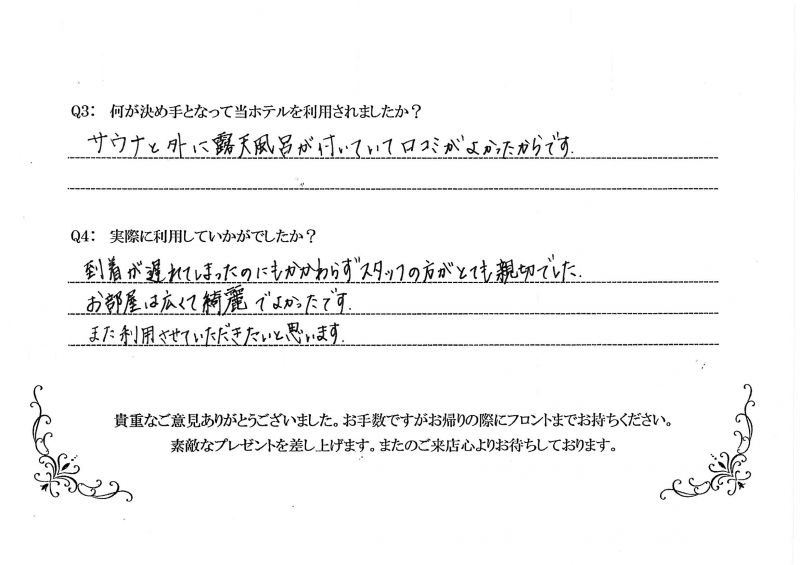 Q3： 何が決め手となって当ホテルを利用されましたか？
サウナと外に露天風呂が付いていて口コミがよかったからです.
Q4： 実際に利用していかがでしたか？
到着が遅れてしまったのにもかかわらずスタッフの方がとても親切でした.
お部屋は広くて綺麗でよかったです.
また利用させていただきたいと思います.
貴重なご意見ありがとうございました。お手数ですがお帰りの際にフロントまでお持ちください。
素敵なプレゼントを差し上げます。またのご来店心よりお待ちしております。